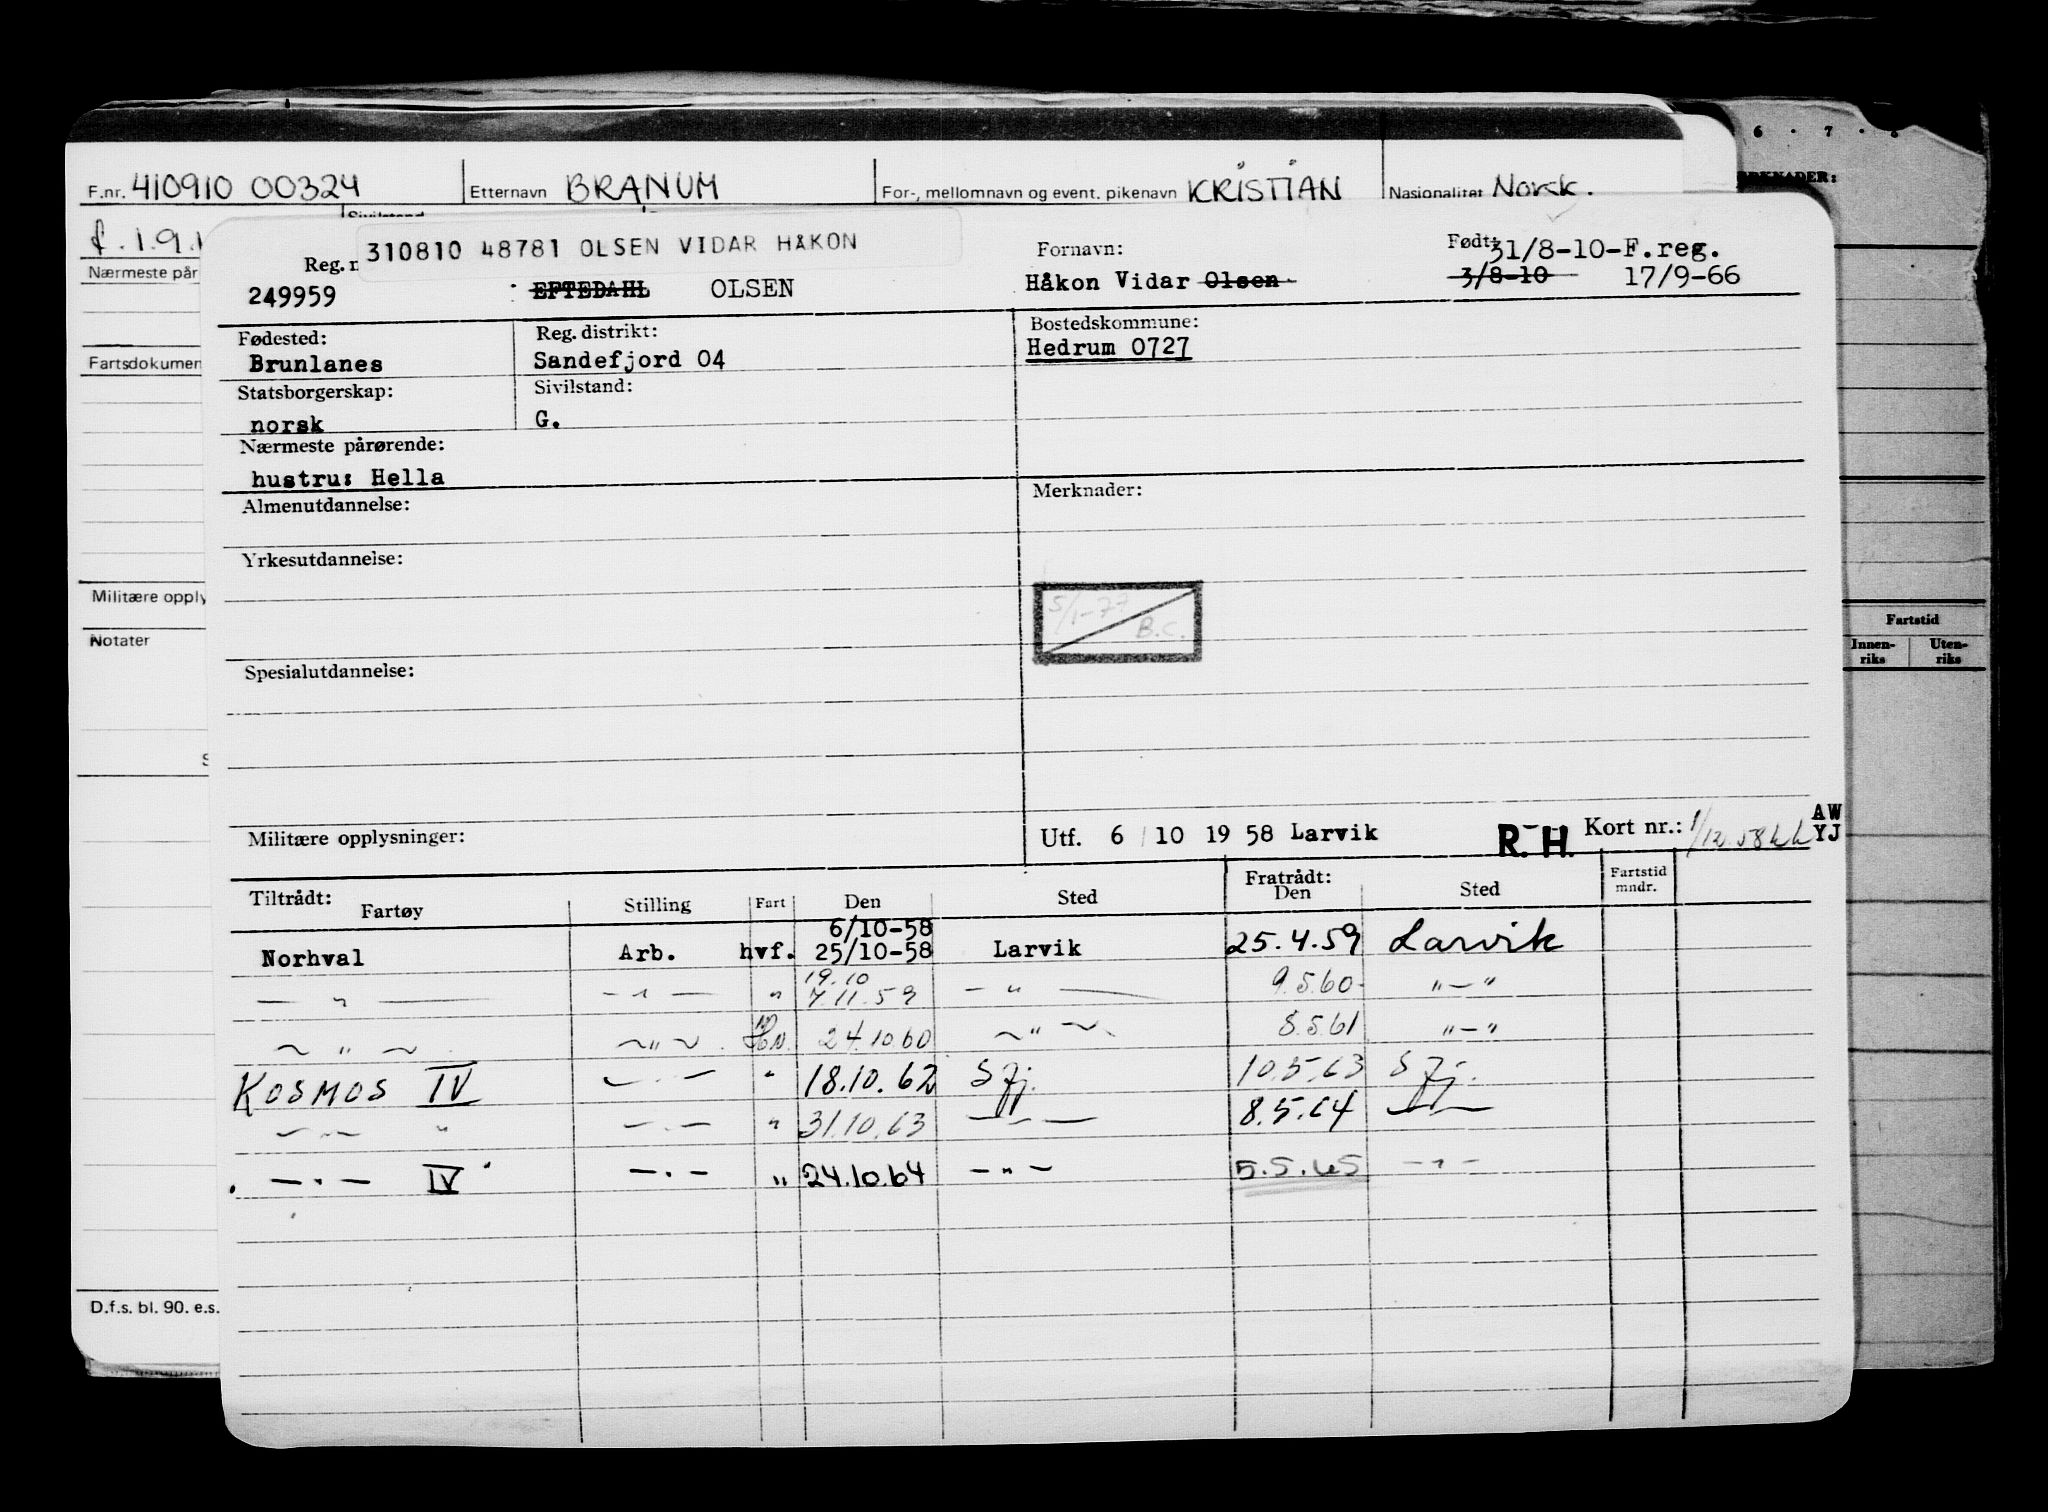 6 . 7 . 8
F.nr. 410910 00324 Etternavn BRANUM For-, mellomnavn og event. pikenavn KRISTIAN Nasjonalitet Norsk.
Nærmeste pår
Fartsdokumen
Militære opply
Notater
D.f.s. bl. 90. e.s.
Fartstid
Innen- Uten-
riks riks
310810 48781 OLSEN VIDAR HÅKON Fornavn: Født: 31/8-10-F.reg.
Reg.n
249959 EFTEDAHL OLSEN Håkon Vidar Olsen 3/8-10 17/9-66
Fødested: Reg. distrikt: Bostedskommune:
Brunlanes Sandefjord 04 Hedrum 0727
Statsborgerskap: Sivilstand:
norsk G.
Nærmeste pårørende:
hustru: Hella
Almenutdannelse: Merknader:
Yrkesutdannelse:
5/1-77
B.C.
Spesialutdannelse:
Militære opplysninger: Utf. 6/10 19 58 Larvik R.H. Kort nr.: 1/12.58 AW
YJ
Tiltrådt: Fratrådt: Fartstid
Fartøy Stilling Fart Den Sted Den Sted mndr.
6/10-58
Norhval Arb. hvf. 25/10-58 Larvik 25.4.59 Larvik
19.10
— " — — " — " 7.11.59 — " — 9.5.60 " — "
~ " ~ ~ " ~ 24.10.60 ~ " ~ 8.5.61 " — "
KOSMOS IV — " — " 18.10.62 Sfj. 10.5.63 Sfj.
— " — " — " — " 31.10.63 — " — 8.5.64 — " —
— " — IV — " — " 24.10.64 — " — 5.5.65 — " —